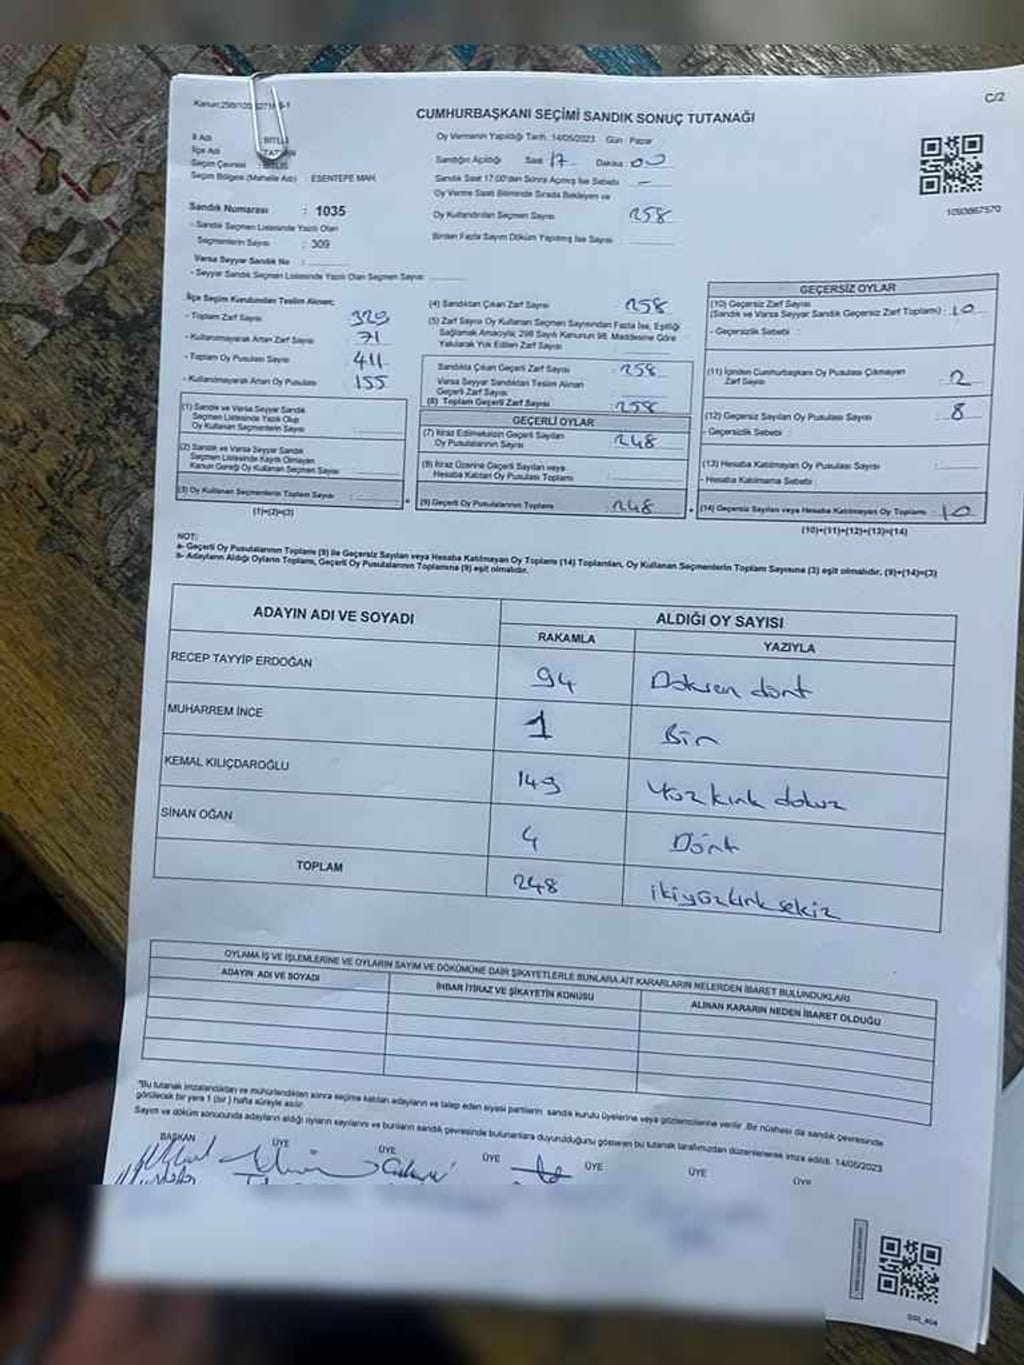 C/2
CUMHURBAŞKANI SEÇİMİ SANDIK SONUÇ TUTANAĞI
İl Adı
İlçe Adı
Seçim Çevresi
Seçim Bölgesi (Mahalle Adı) : ESENTEPE MAH.
Sandık Numarası : 1035
- Sandık Seçmen Listesinde Yazılı Olan
Seçmenlerin Sayısı : 309
Varsa Seyyar Sandık No :
- Seyyar Sandık Seçmen Listesinde Yazılı Olan Seçmen Sayısı:
Oy Vermenin Yapıldığı Tarih: 14/05/2023 Gün : Pazar
Sandığın Açıldığı Saat : 17 Dakika : 00
Sandık Saat 17.00'den Sonra Açılmış İse Sebebi : -
Oy Verme Saati Bitiminde Sırada Bekleyen ve
Oy Kullandırılan Seçmen Sayısı : 258
Birden Fazla Sayım Döküm Yapılmış İse Sayısı :
1093867570
İlçe Seçim Kurulundan Teslim Alınan;
- Toplam Zarf Sayısı : 329
- Kullanılmayarak Artan Zarf Sayısı : 71
- Toplam Oy Pusulası Sayısı : 411
- Kullanılmayarak Artan Oy Pusulası : 155
(1) Sandık ve Varsa Seyyar Sandık
Seçmen Listesinde Yazılı Olup
Oy Kullanan Seçmenlerin Sayısı :
(2) Sandık ve Varsa Seyyar Sandık
Seçmen Listesinde Kayıtlı Olmayan
Kanun Gereği Oy Kullanan Seçmen Sayısı:
(3) Oy Kullanan Seçmenlerin Toplam Sayısı :
(1)+(2)=(3)
(4) Sandıktan Çıkan Zarf Sayısı : 258
(5) Zarf Sayısı Oy Kullanan Seçmen Sayısından Fazla İse, Eşitliği
Sağlamak Amacıyla; 298 Sayılı Kanunun 98. Maddesine Göre
Yakılarak Yok Edilen Zarf Sayısı :
Sandıkta Çıkan Geçerli Zarf Sayısı : 258
Varsa Seyyar Sandıktan Teslim Alınan
Geçerli Zarf Sayısı :
(6) Toplam Geçerli Zarf Sayısı : 258
GEÇERLİ OYLAR
(7) İtiraz Edilmeksizin Geçerli Sayılan
Oy Pusulalarının Sayısı : 248
(8) İtiraz Üzerine Geçerli Sayılan veya
Hesaba Katılan Oy Pusulası Toplamı :
(9) Geçerli Oy Pusulalarının Toplamı : 248
GEÇERSİZ OYLAR
(10) Geçersiz Zarf Sayısı
(Sandık ve Varsa Seyyar Sandık Geçersiz Zarf Toplamı) : 10
- Geçersizlik Sebebi :
(11) İçinden Cumhurbaşkanı Oy Pusulası Çıkmayan
Zarf Sayısı : 2
(12) Geçersiz Sayılan Oy Pusulası Sayısı : 8
- Geçersizlik Sebebi :
(13) Hesaba Katılmayan Oy Pusulası Sayısı :
- Hesaba Katılmama Sebebi :
(14) Geçersiz Sayılan veya Hesaba Katılmayan Oy Toplamı : 10
(10)+(11)+(12)+(13)=(14)
NOT:
a- Geçerli Oy Pusulalarının Toplamı (9) ile Geçersiz Sayılan veya Hesaba Katılmayan Oy Toplamı (14) Toplamları, Oy Kullanan Seçmenlerin Toplam Sayısına (3) eşit olmalıdır. (9)+(14)=(3)
b- Adayların Aldığı Oyların Toplamı, Geçerli Oy Pusulalarının Toplamına (9) eşit olmalıdır.
ADAYIN ADI VE SOYADI ALDIĞI OY SAYISI
RAKAMLA YAZIYLA
RECEP TAYYİP ERDOĞAN 94 Doksan dört
MUHARREM İNCE 1 Bir
KEMAL KILIÇDAROĞLU 149 Yüz kırk dokuz
SİNAN OĞAN 4 Dört
TOPLAM 248 ikiyüzkırk sekiz
OYLAMA İŞ VE İŞLEMLERİNE VE OYLARIN SAYIM VE DÖKÜMÜNE DAİR ŞİKAYETLERLE BUNLARA AİT KARARLARIN NELERDEN İBARET BULUNDUKLARI
ADAYIN ADI VE SOYADI İHBAR İTİRAZ VE ŞİKAYETİN KONUSU ALINAN KARARIN NEDEN İBARET OLDUĞU
"Bu tutanak imzalandıktan ve mühürlendikten sonra seçime katılan adayların ve talep eden siyasi partilerin sandık kurulu üyelerine veya gözlemcilerine verilir. Bir nüshası da sandık çevresinde
görülecek bir yere 1 (bir) hafta süreyle asılır.
Sayım ve döküm sonucunda adayların aldığı oyların sayılarını ve bunların sandık çevresinde bulunanlara duyurulduğunu gösteren bu tutanak tarafımızdan düzenlenerek imza edildi. 14/05/2023
BAŞKAN ÜYE ÜYE ÜYE ÜYE ÜYE ÜYE